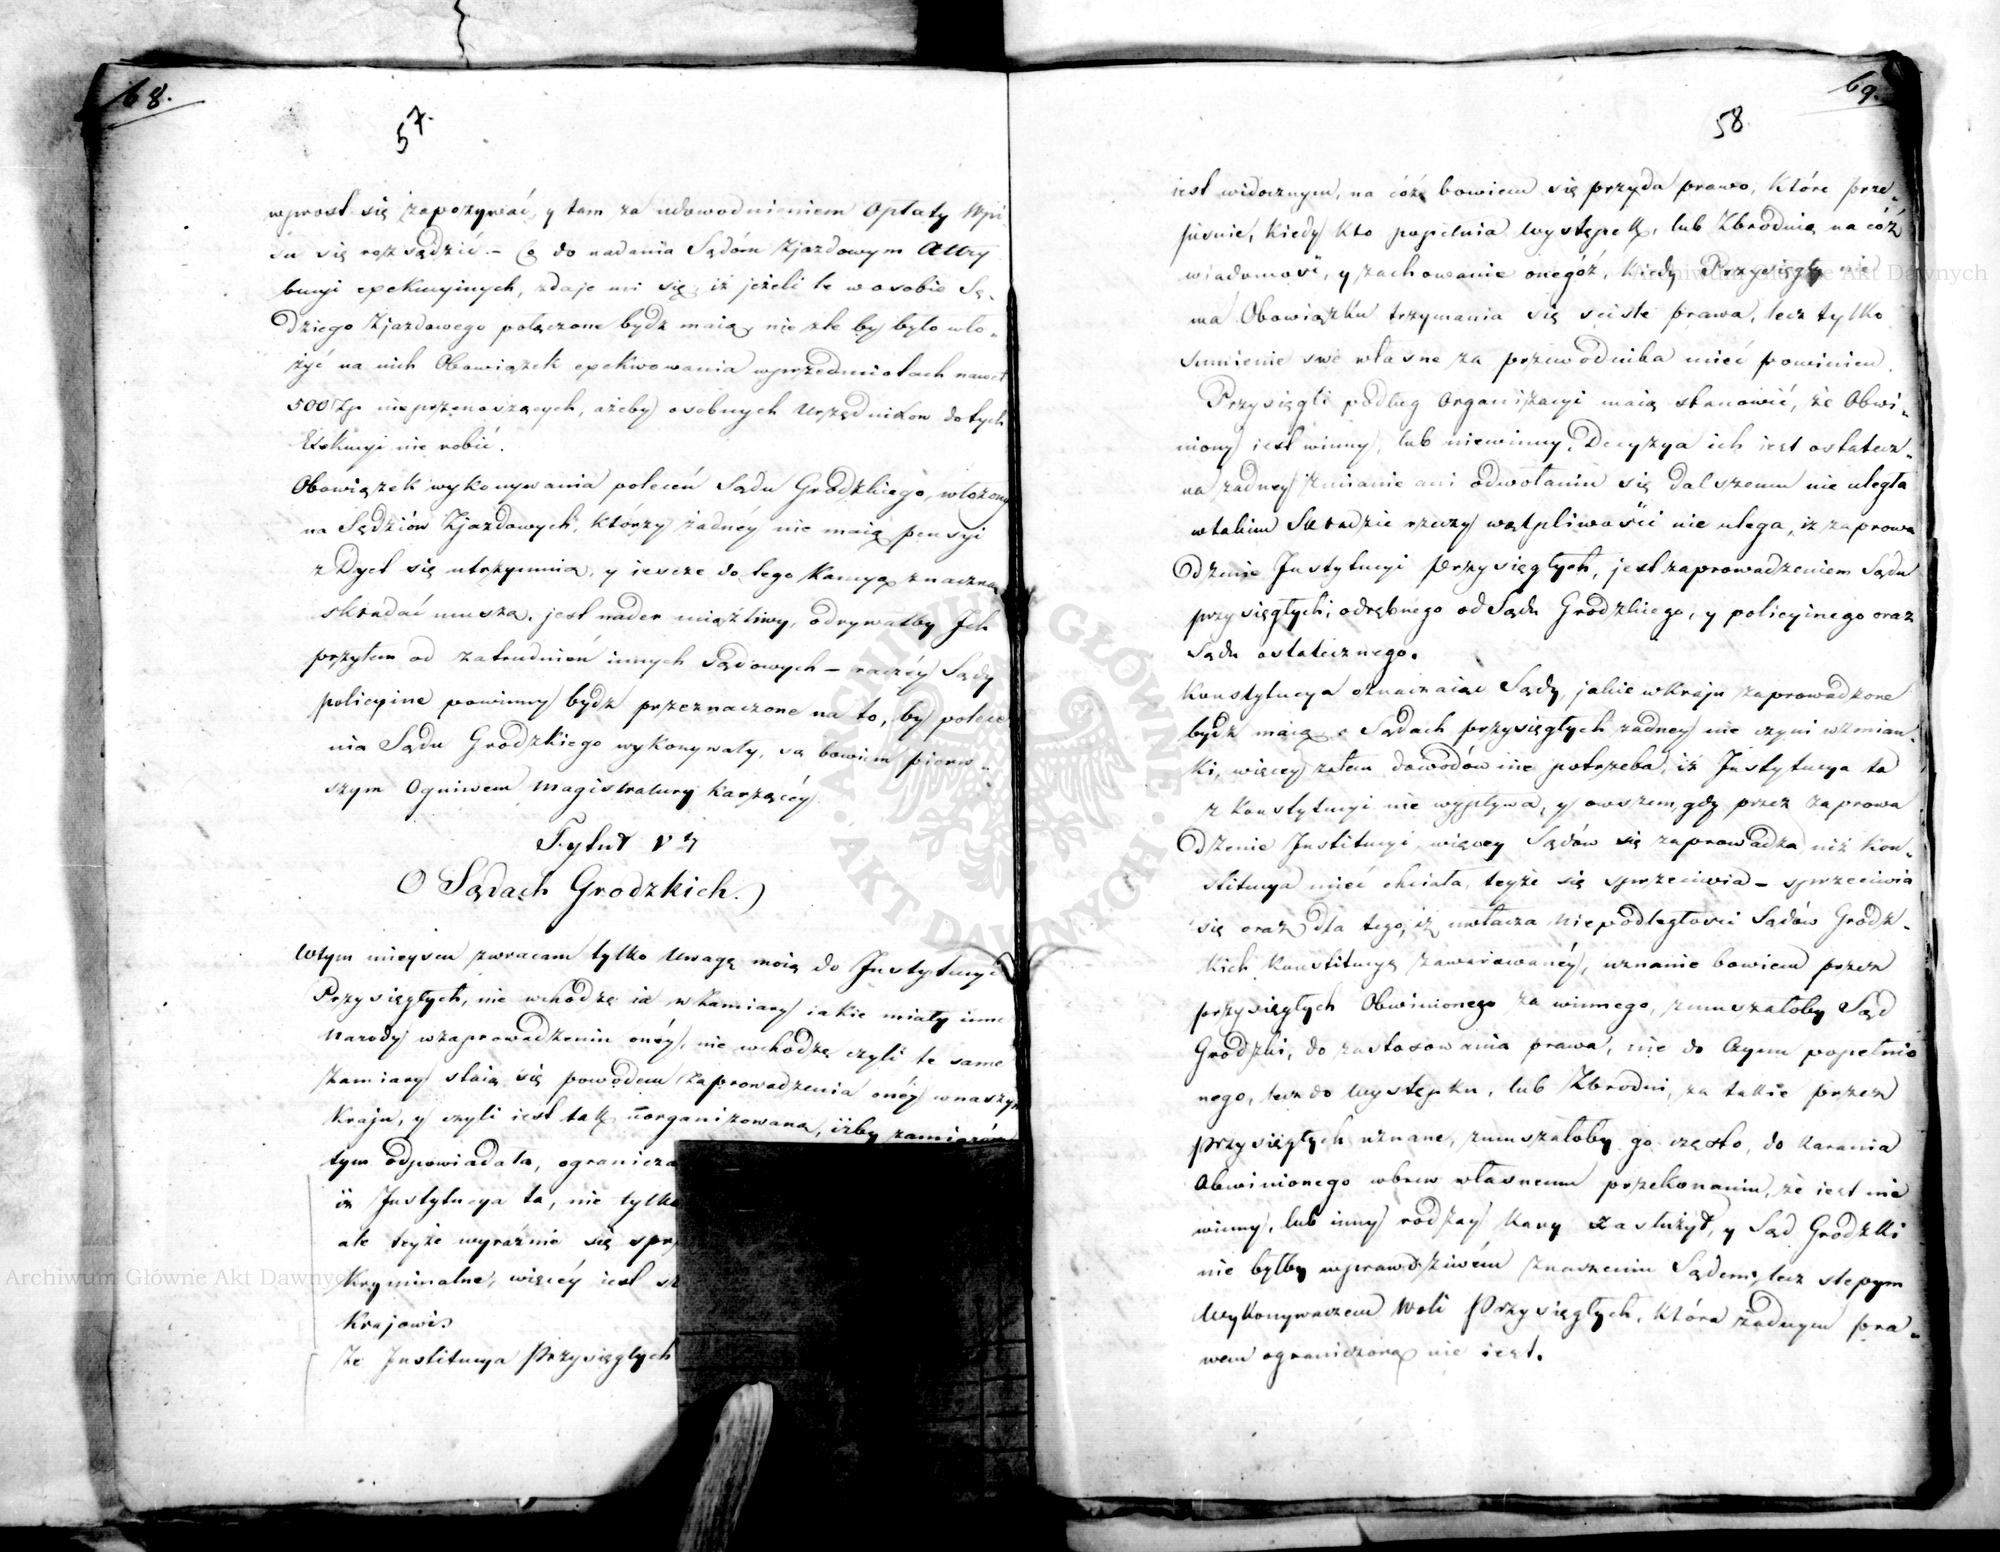 68.
57.
wprost się zapozywać, y tam za udowodnieniem Opłaty Wpi
su się rozsądzić. – Co do nadania Sądóm Zjazdowym Attry
bucyi exekucyinych, zdaje mi się, iż jeżeli te w osobie Sę-
dziego Zjazdowego połączone bydź maią, nie źle by było wło-
żyć na nich Obowiązek exekwowania w przedmiotach nawet
500 Zp. nieprzenoszących, ażeby osobnych Urzędników do tych
Exekucyi nie robić.
Obowiązek wykonywania poleceń Sądu Grodzkiego, włożony
na Sędziów Zjazdowych, którzy żadnéy nie maią pensyi
z Dyet się utrzymuią, y ieszcze do tego Kaucyą znaczną
składać muszą, jest nader uciążliwy, odrywałby Ich
przytem od zatrudnień innych Sądowych – raczéy Sądy
policyine powinny bydź przeznaczone na to, by polece
nia Sądu Grodzkiego wykonywały, są bowiem pierw-
szym Ogniwem Magistratury Karzącéy
Tytuł V ty
O Sądach Grodzkich.)
W tym mieyscu zwracam tylko Uwagę moią do Instytucyi
Przysięgłych, nie wchodzę ia w Zamiary iakie miały inne
Narody w zaprowadzeniu onéy, nie wchodzę czyli te same
Zamiary staią się powodem zaprowadzenia onéy w naszym
Kraju, y czyli iest tak uorganizowana, iżby zamiaróm
tym odpowiadała, ogranicza
iż Instytucya ta, nie tylko
ale teyże wyraźnie się sprz
Kryminalne, więcéy iest sz
Krajowi.
Że Institucya Przysięgłych
69.
58
iest widocznym, na cóż bowiem się przyda prawo, które prze-
pisuie, kiedy kto popełnia Występek, lub Zbrodnią na cóż
wiadomość, y zachowanie onegóż, kiedy Przysięgły nie
ma Obowiązku trzymania się ściśle prawa, lecz tylko
Sumienie swe własne za przewodnika mieć powinien.
Przysięgli podług Organizacyi maią stanowić, że Obwi-
niony iest winny, lub niewinny, Decyzya ich iest ostatecz-
na, żadney zmianie ani odwołaniu się dalszemu nie uległa
w takim Składzie rzeczy wątpliwości nie ulega, iż zaprowa
dzenie Instytucyi Przysięgłych, jest zaprowadzeniem Sądu
przysięgłych, odrębnego od Sądu Grodzkiego, y policyinego oraz
Sądu ostatecznego.
Konstytucya oznaczaiąc Sądy, jakie w Kraju zaprowadzone
bydź maią, o Sądach przysięgłych żadney nie czyni wzmian-
ki, więcey zatem dowodów nie potrzeba, iż Instytucya ta
z Konstytucyi nie wypływa, y owszem, gdy przez zaprowa
dzenie Institucyi, więcey Sądów się zaprowadza niż Kon-
stitucya mieć chciała, teyże się sprzeciwia – sprzeciwia
się oraz dla tego, iż uwłacza Niepodległości Sądów Grodz-
kich Konstitucyą zawarowanéy, uznanie bowiem przez
przysięgłych Obwinionego za winnego, zmuszałoby Sąd
Grodzki, do zastosowania prawa, nie do Czynu popełnio
nego, lecz do Występku, lub Zbrodni, za takie przez
Przysięgłych uznane, zmuszałoby go często, do karania
Obwinionego wbrew własnemu przekonaniu, że iest nie
winny, lub inny rodzay Kary zasłużył, y Sąd Grodzki
nie byłby w prawdziwém znaczeniu Sądem, lecz ślepym
Wykonywaczem Woli Przysięgłych, która żadnym pra-
wem ograniczoną nie iest.
Archiwum Główne Akt Dawnych
Archiwum Główne Akt Dawnych
ARCHIWUM GŁÓWNE AKT DAWNYCH